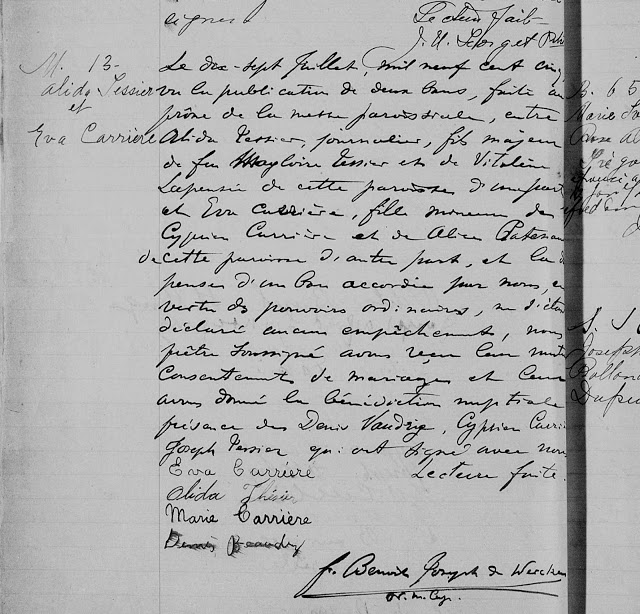 signer
Lecture faite
M. 13-
Alida Tessier
et
Eva Carrière
Le dix-sept Juillet, mil neuf cent cinq
vu la publication de deux bans, faite au
prône de la messe paroissiale, entre
Alida Tessier, journalier, fils majeur
de feu Magloire Tessier et de Vitaline
Lapensée de cette paroisse d'une part
et Eva Carrière, fille mineure de
Cyprien Carrière et de Alice
de cette paroisse d'autre part, et la dis
pense d'un ban accordée par nous, en
vertu de pouvoirs ordinaires, ne s'étant
déclaré aucun empêchement, nous
prêtre soussigné avons reçu leur mutuel
consentement de mariage et leur
avons donné la bénédiction nuptiale
présence de Denis Vaudrie, Cyprien Carri
Joseph Tessier qui ont signé avec nous
Lecture faite.
Eva Carrière
Alida
Marie Carrière
Denis
fr. Benoit Joseph de
or. m. Cap.
B. 65
Marie
Rose
S.
Joseph